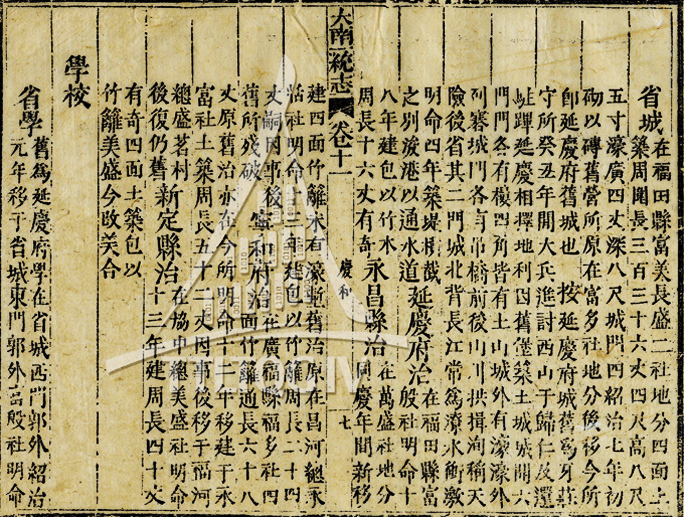 省城 在福田縣富美長盛二社地分四面土
築周圍長三百三十六丈四尺高八尺
五寸濠廣四丈深八尺城門四紹治七年初
砌以磚舊營所原在富多社地分後移今所
卽延慶府舊城也 按延慶府城舊爲牙莊
守所癸丑年間大兵進討西山于歸仁及還
駐蹕延慶相擇地利因舊堡築土城城開六
門門各有樓四角皆有土山城外有濠濠外
列寨城門各有吊橋前後山川拱揖洵稱天
險後省其二門城北背長江常爲潦水衝激
明命四年築堤橫截
之別浚港以通水道
延慶府治
在福田縣富
般社明命十
八年建包以竹木
周長十六丈有奇
永昌縣治
在萬盛社地分
同慶年間新移
大南一統志 卷十一 慶和 七
建四面竹籬木有濠塹舊治原在昌河總永
活社明命十三年建包以竹籬周長二十四
丈嗣因事後
舊所殘破
寧和府治
在廣福縣福多社四
面竹籬通長六十八
丈原舊治亦在今所明命十二年移建于永
富社土築周長五十二丈因事後移于福河
總盛茗村
後復仍舊
新定縣治
在協中總美盛社明命
十三年建周長四十丈
有奇四面土築包以
竹籬美盛今改芙合
學校
省學 舊爲延慶府學在省城西門郭外紹治
元年移于省城東門郭外富般社明命